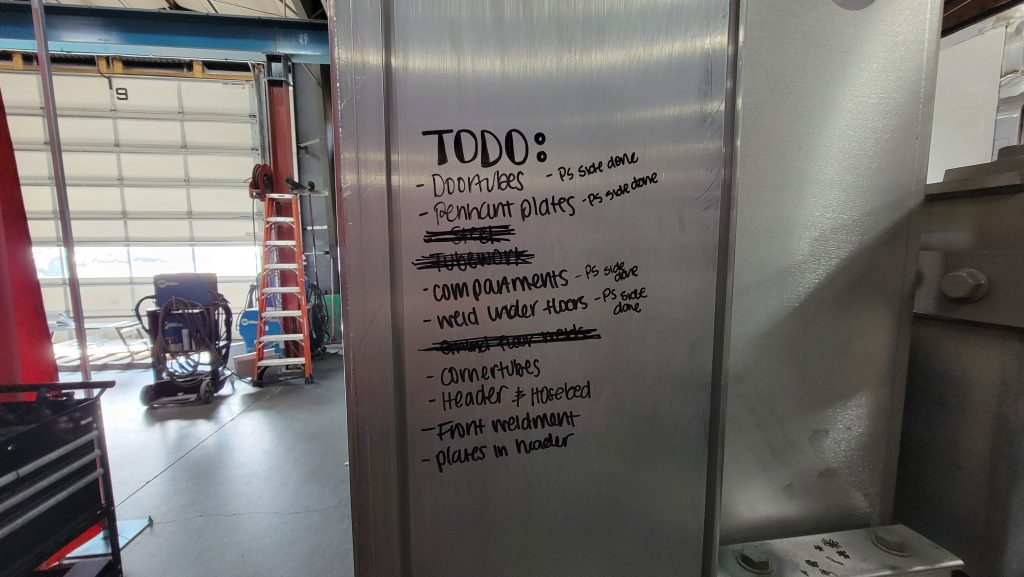 9
TODO:
- Doortubes - PS side done
- Pennant plates - PS side done
- Steel
- Tubework
- compartments - PS side done
- weld under floors - PS side done
- floor welds
- cornertubes
- Header & Hosebed
- Front weldment
- plates in header